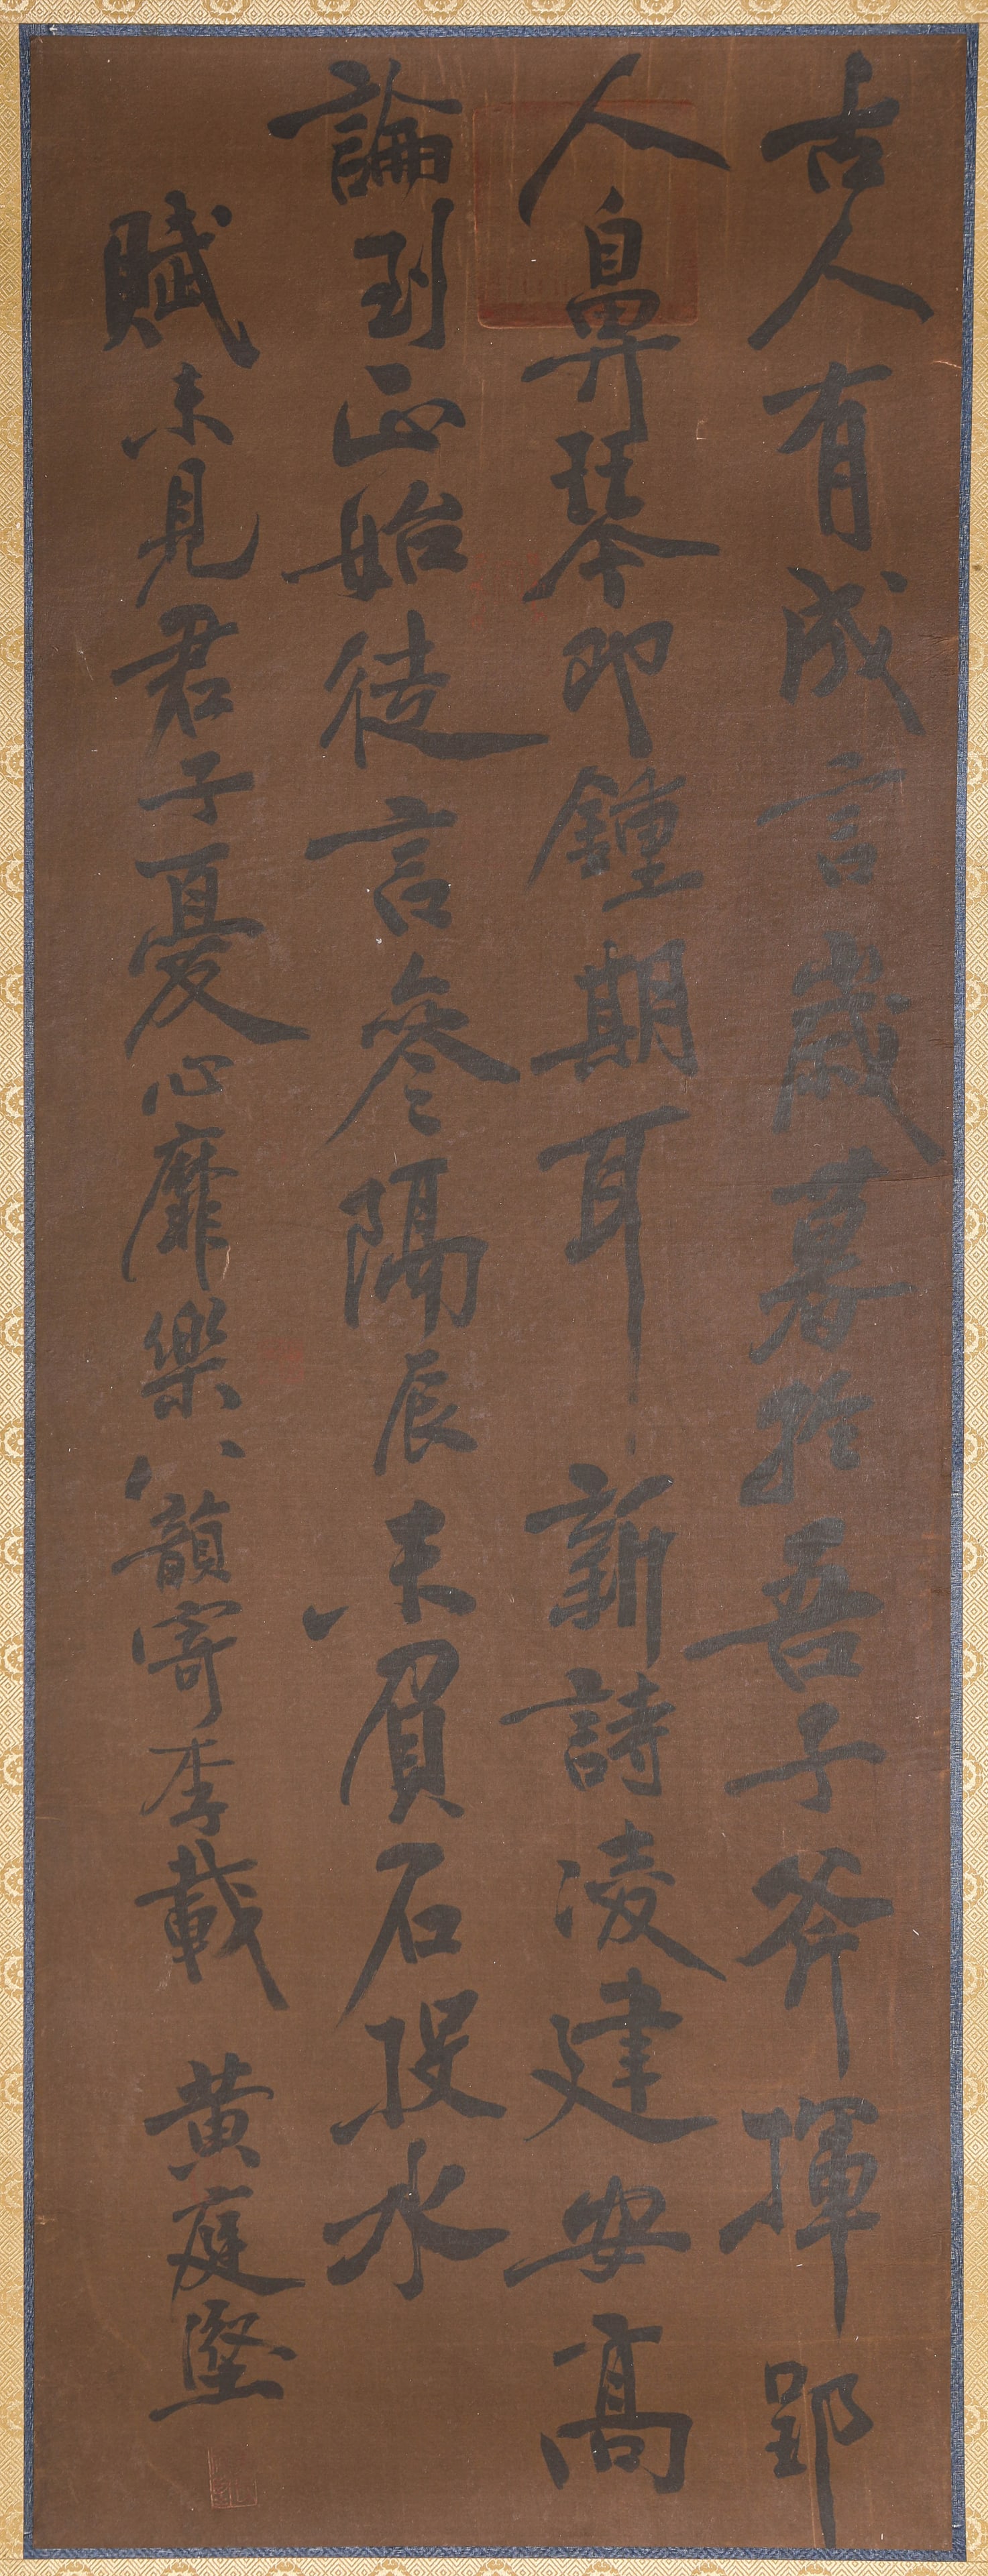 古人有成言歲暮扵吾子斧揮郢
人鼻琴即鍾期耳新詩凌建安高
論到正始徒言參隔辰未負石投水
賦未見君子憂心靡樂八韻寄李載 黄庭堅